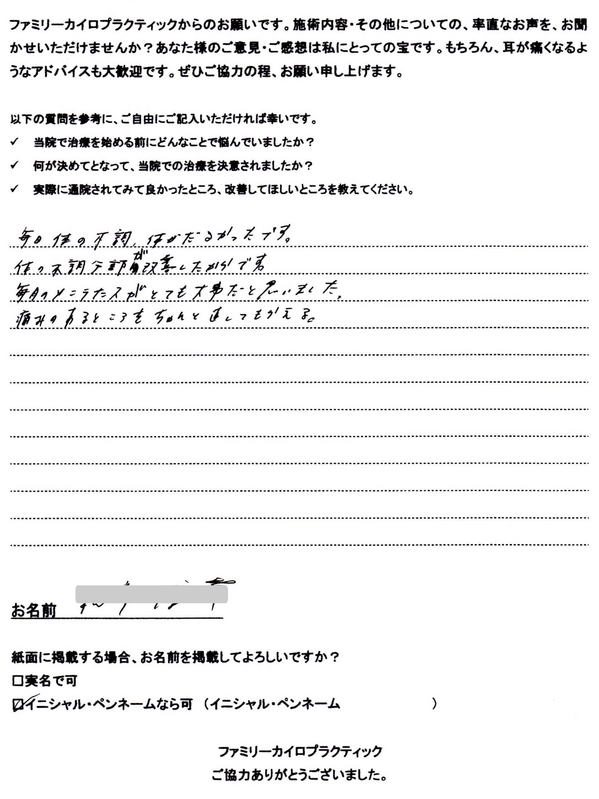 ファミリーカイロプラクティックからのお願いです。施術内容・その他についての、率直なお声を、お聞
かせいただけませんか?あなた様のご意見・ご感想は私にとっての宝です。もちろん、耳が痛くなるよ
うなアドバイスも大歓迎です。ぜひご協力の程、お願い申し上げます。
以下の質問を参考に、ご自由にご記入いただければ幸いです。
✓ 当院で治療を始める前にどんなことで悩んでいましたか?
✓ 何が決めてとなって、当院での治療を決意されましたか?
✓ 実際に通院されてみて良かったところ、改善してほしいところを教えてください。
毎日体の不調、体がだるかったです。
体の不調全部が改善したからです
毎月のメンテナンスがとても大事だと思いました。
痛みのあるところをちゃんと直してもらえる。
お名前
紙面に掲載する場合、お名前を掲載してよろしいですか?
□実名で可
☑イニシャル・ペンネームなら可 (イニシャル・ペンネーム )
ファミリーカイロプラクティック
ご協力ありがとうございました。